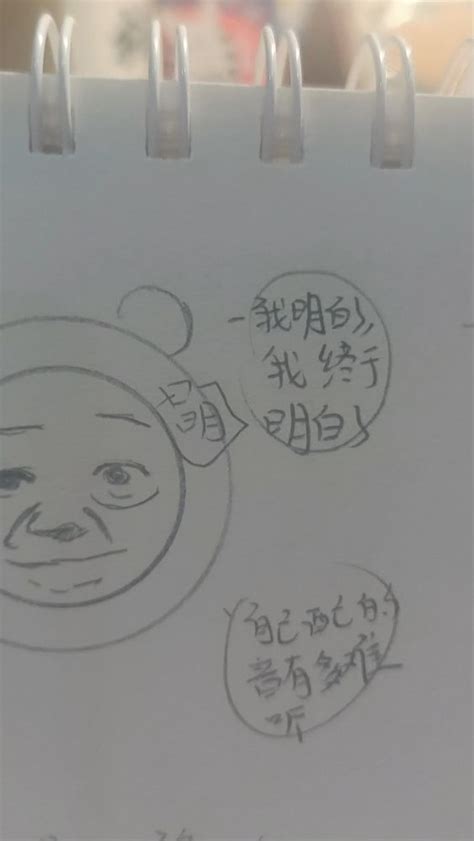 我明白了，
我终于
明白了
明
自己配己的
音有多难
听